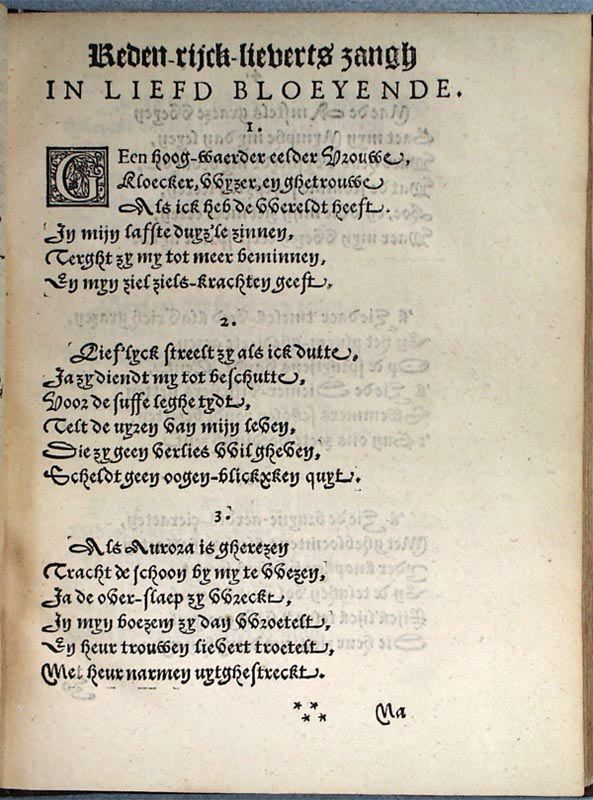 Reden-rijck-lieverts zangh
IN LIEFD BLOEYENDE.
1.
GEen hoog-waerder eelder Vrouwe,
Kloecker, VVyzer, en ghetrouwe
Als ick heb de VVereldt heeft.
In mijn lafste duyz'le zinnen,
Terght zy my tot meer beminnen,
En myn ziel ziels-krachten geeft.
2.
Lief'lyck streelt zy als ick dutte,
Ja zy diendt my tot beschutte,
Voor de suffe leghe tydt,
Telt de uyren van mijn leven,
Die zy geen verlies VVil gheven,
Scheldt geen oogen-blickxken quyt.
3.
Als Aurora is gherezen
Tracht de schoon by my te VVezen,
Ja de over-slaep zy VVreckt,
In myn boezem zy dan VVroetelt,
En heur trouwen lievert troetelt,
Met heur narmen uytghestreckt.
⁎⁎⁎⁎ Ma